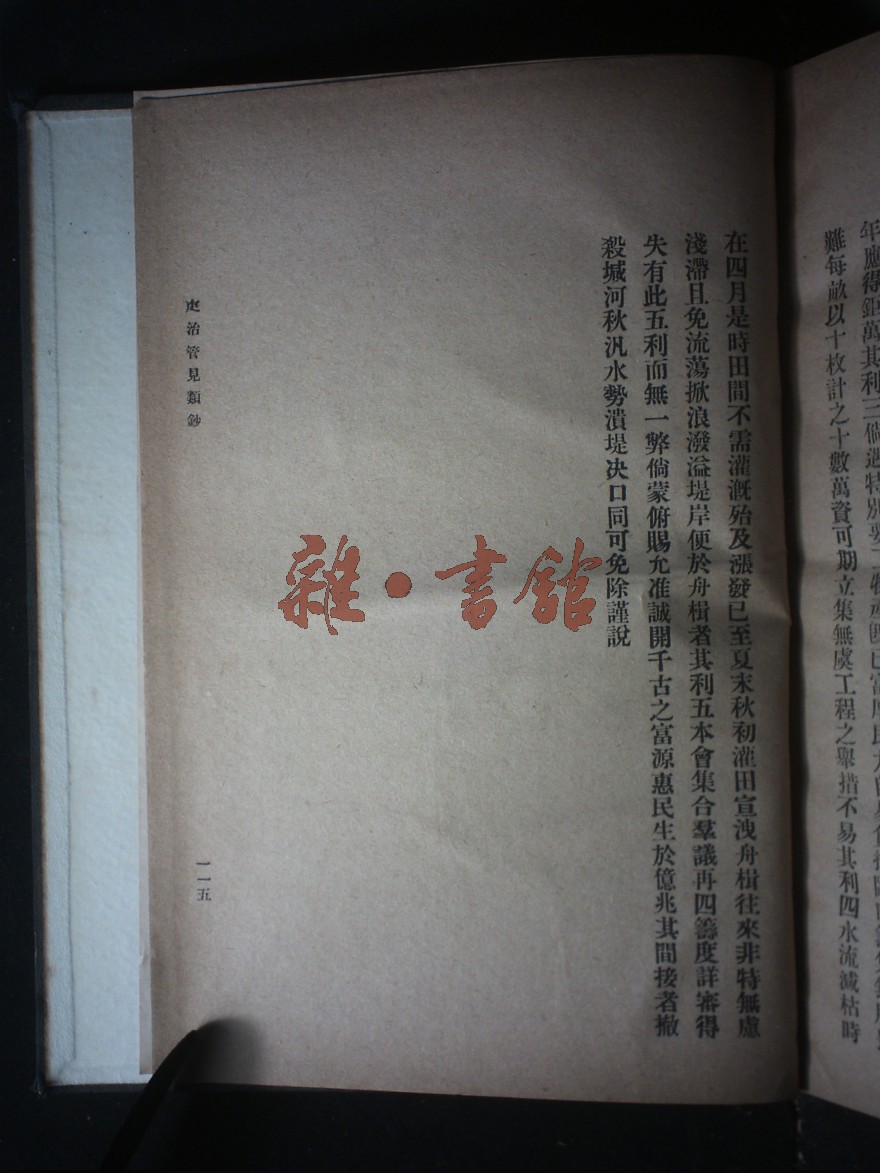 年應得
難每畝以十枚計之十數萬資可期立集無虞工程之舉措不易其利四水流減枯時
在四月是時田間不需灌溉殆及漲發已至夏末秋初灌田宣洩舟楫往來非特無慮
淺滯且免流蕩掀浪潑溢堤岸便於舟楫者其利五本會集合羣議再四籌度詳審得
失有此五利而無一弊倘蒙俯賜允准誠開千古之富源惠民生於億兆其間接者撤
殺城河秋汎水勢潰堤决口同可免除謹說
治管見類鈔
一一五
雜·書館